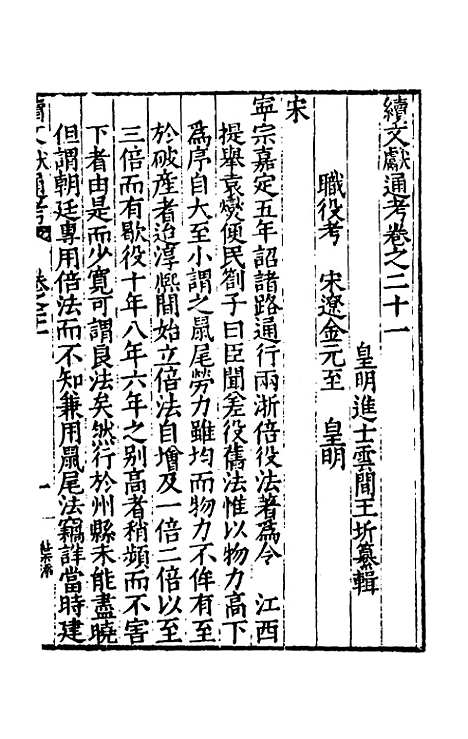 續文獻通考卷之二十一
皇明進士雲間王圻纂輯
職役考　宋遼金元至　皇明
宋
寧宗嘉定五年詔諸路通行兩浙倍役法著為令　江西
提舉袁燮便民劄子曰臣聞差役舊法惟以物力高下
為序自大至小謂之鼠尾勞力雖均而物力不侔有至
於破產者迨淳熈間始立倍法自增及一倍二倍以至
三倍而有歇役十年八年六年之别高者稍頻而不害
下者由是而少寬可謂良法矣然行於州縣未能盡曉
但謂朝廷專用倍法而不知兼用鼠尾法竊詳當時建
續文獻通考
卷之二十一
一